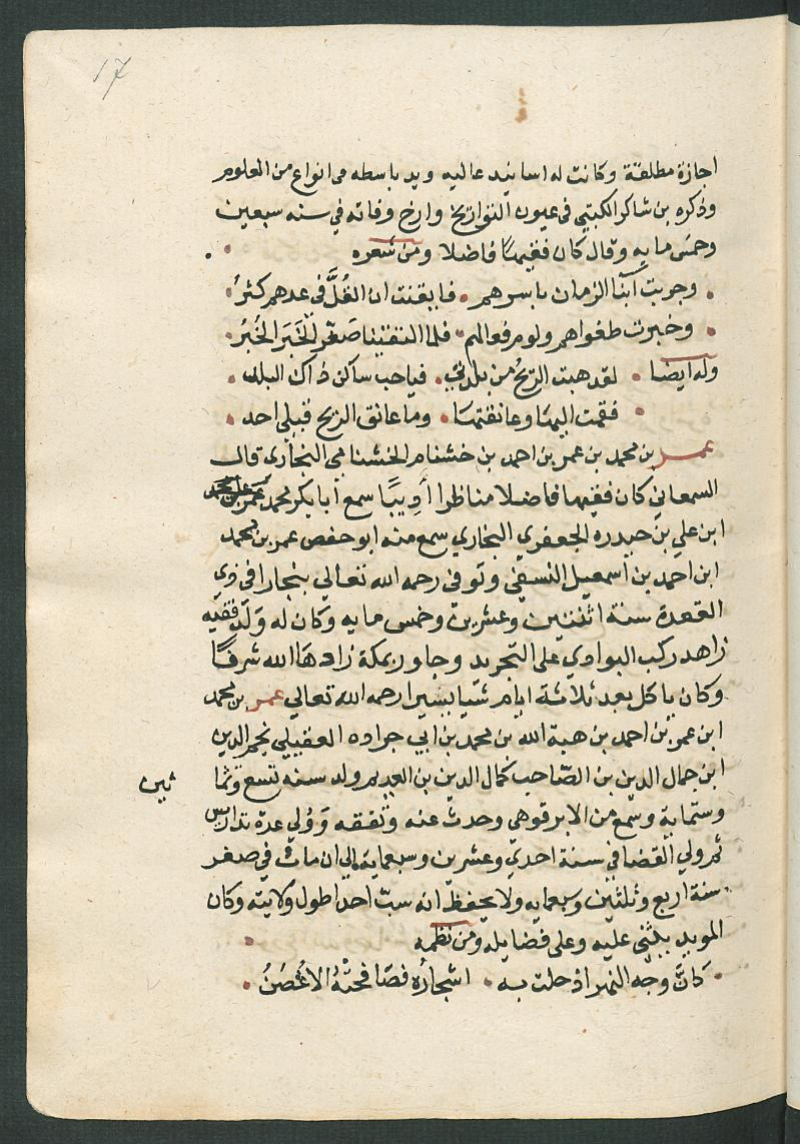 17
اجازة مطلقة وكانت له اسانيد عاليه ويد باسطه فى انواع من العلوم
وذكره بن شاكر الكبتي فى عيون التواريخ وارخ وفاته في سنه سبعين
وخمس مايه وقال كان فقيها فاضلا ومن شعره
وجربت ابنا الزمان باسرهم . فايقنت ان القُلَّ في عدهم كثرُ
وخبرت طغواهم ولوم فعالهم . فلما التقينا صَغّر الخَبَر الخُبْرُ
وله ايضا . لقد هبت الريحُ من بلدتي . فياحب ساكن ذاك البلد
فقمت اليها وعانقتها . وما عانق الريح قبلي احد
عمر بن محمد بن عمر بن احمد بن خشنام الخشنامي البخاري قال
السمعاني كان فقيها فاضلا مناظرا أديبًا سمع أبا بكر محمد
ابن علي بن حيدره الجعفري البخاري سمع منه ابو حفص عمر بن محمد
ابن احمد بن اسمعيل النسفي وتوفى رحمه الله تعالي ببخارا في ذي
القعدة سنة اثنتين وعشرين وخمس مايه وكان له ولد فقيه
زاهد ركب البوادي على التجريد وجاور بمكة زادها الله شرفًا
وكان ياكل بعد ثلاثة ايام شيا يسيرا رحمه الله تعالي عمر بن محمد
ابن عمر بن احمد بن هبة الله بن محمد بن ابي جراده العقيلي نجم الدين
ابن جمال الدين بن الصّاحب كمال الدين بن العديم ولد سنه تسع وثما
نين
وستماية وسمع من الابرقوهي وحدث عنه وتفقه وَوُلي عدة تدارس
ثم ولي القضا في سنة احدي وعشرين وسبعماية الي ان مات في صفر
سنة اربع وثلثين وسبعمايه ولا يحفظ انه سبّ احدا طول ولايته وكان
المويد يثنى عليه وعلى فضايله ومن نظمه
كانّ وجه النهر اذ حلت به . اشجارُه فصَافحتْهُ الاغْصُنُ